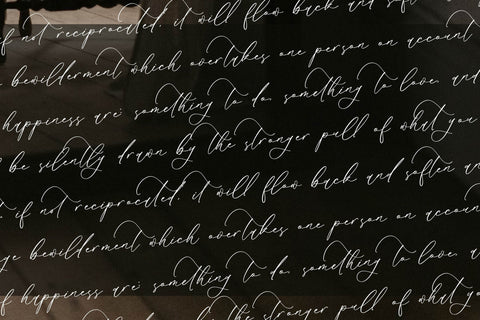 if not reciprocated, it will flow back and soft
bewilderment which overtakes one person on account
happiness are: something to do, something to love, and
be silently drawn by the stronger pull of what you
if not reciprocated, it will flow back and soften an
ge bewilderment which overtakes one person on accoun
f happiness are: something to do, something to love, a
be silently drawn by the stronger pull of what yo